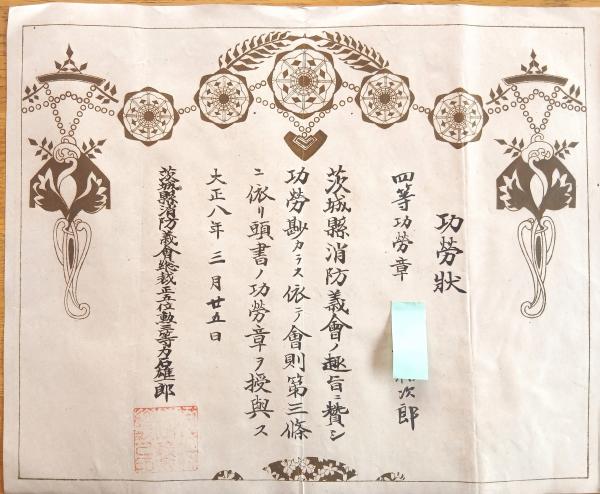 功勞狀
四等功勞章
次郎
茨城縣消防義會ノ趣旨ニ賛シ
功勞尠カラス依テ會則第三條
ニ依リ頭書ノ功勞章ヲ授與ス
大正八年三月廿五日
茨城縣消防義會総裁正五位勲三等力石雄一郎